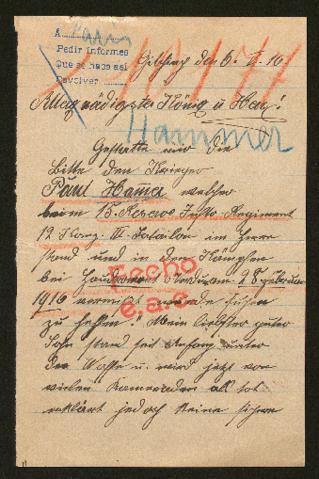 A
Pedir informes
Que se haga así
Devolver
den 6. V. 16.
Allergnädigster König u Herr!
Hammer
Gestatte mir die
Bitte den Krieger
Paul Hamer welcher
beim 15. Reserve Infte. Regiment
12 Komp. III. Batailon im Heere
stand und in den Kämpfen
bei Verdun 28 Februar
1916 vermisst wurde suchen
Hecho
e.a.s
zu helfen!! Mein liebster guter
Sohn stand seit Anfang unter
der Waffe u. wird jetzt von
vielen Kameraden als tot
erklärt jedoch keine